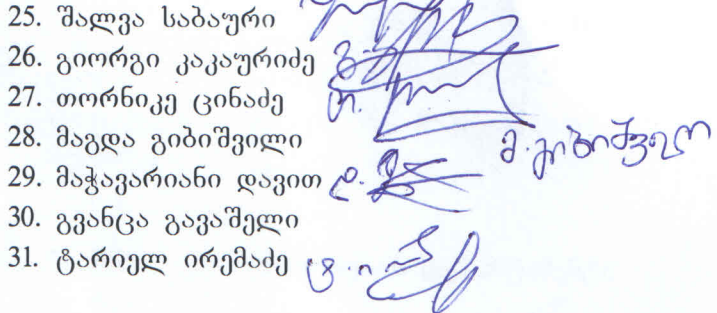 25. შალვა საბაური
26. გიორგი კაკაურიძე
27. თორნიკე ცინაძე
28. მაგდა გიბიშვილი მ. გიბიშვილი
29. მაჭავარიანი დავით
30. გვანცა გავაშელი
31. ტარიელ ირემაძე